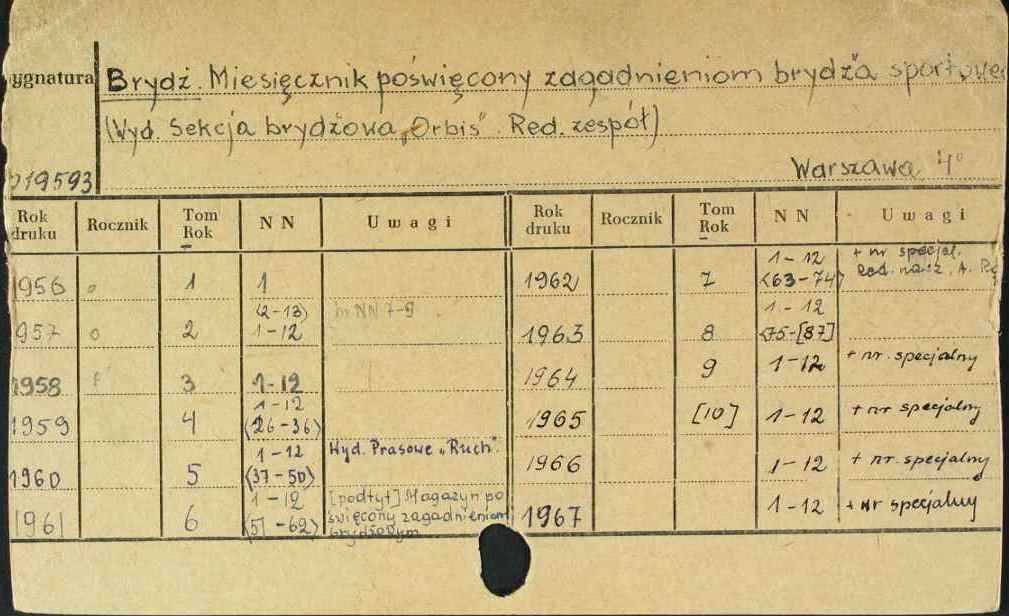 ygnatura
Brydż. Miesięcznik poświęcony zagadnieniom brydża sportowe
(Wyd. Sekcja brydżowa „Orbis". Red. zespół)
Warszawa 4°
19593
Rok druku Rocznik Tom Rok NN Uwagi Rok druku Rocznik Tom Rok NN Uwagi
1956 1 1
957 2 (2-13) 1-12 br NN 7-9
1958 3 1-12
1959 4 1-12 (26-36)
1960 5 1-12 (37-50) Wyd. Prasowe „Ruch".
1961 6 1-12 (51-62) [podtyt] Magazyn poświęcony zagadnieniom brydżowym
1962 7 1-12 (63-74) + nr specjal. Red. nacz. A.
1963 8 1-12 (75-[87]
1964 9 1-12 + nr. specjalny
1965 [10] 1-12 + nr specjalny
1966 1-12 + nr. specjalny
1967 1-12 + nr specjalny